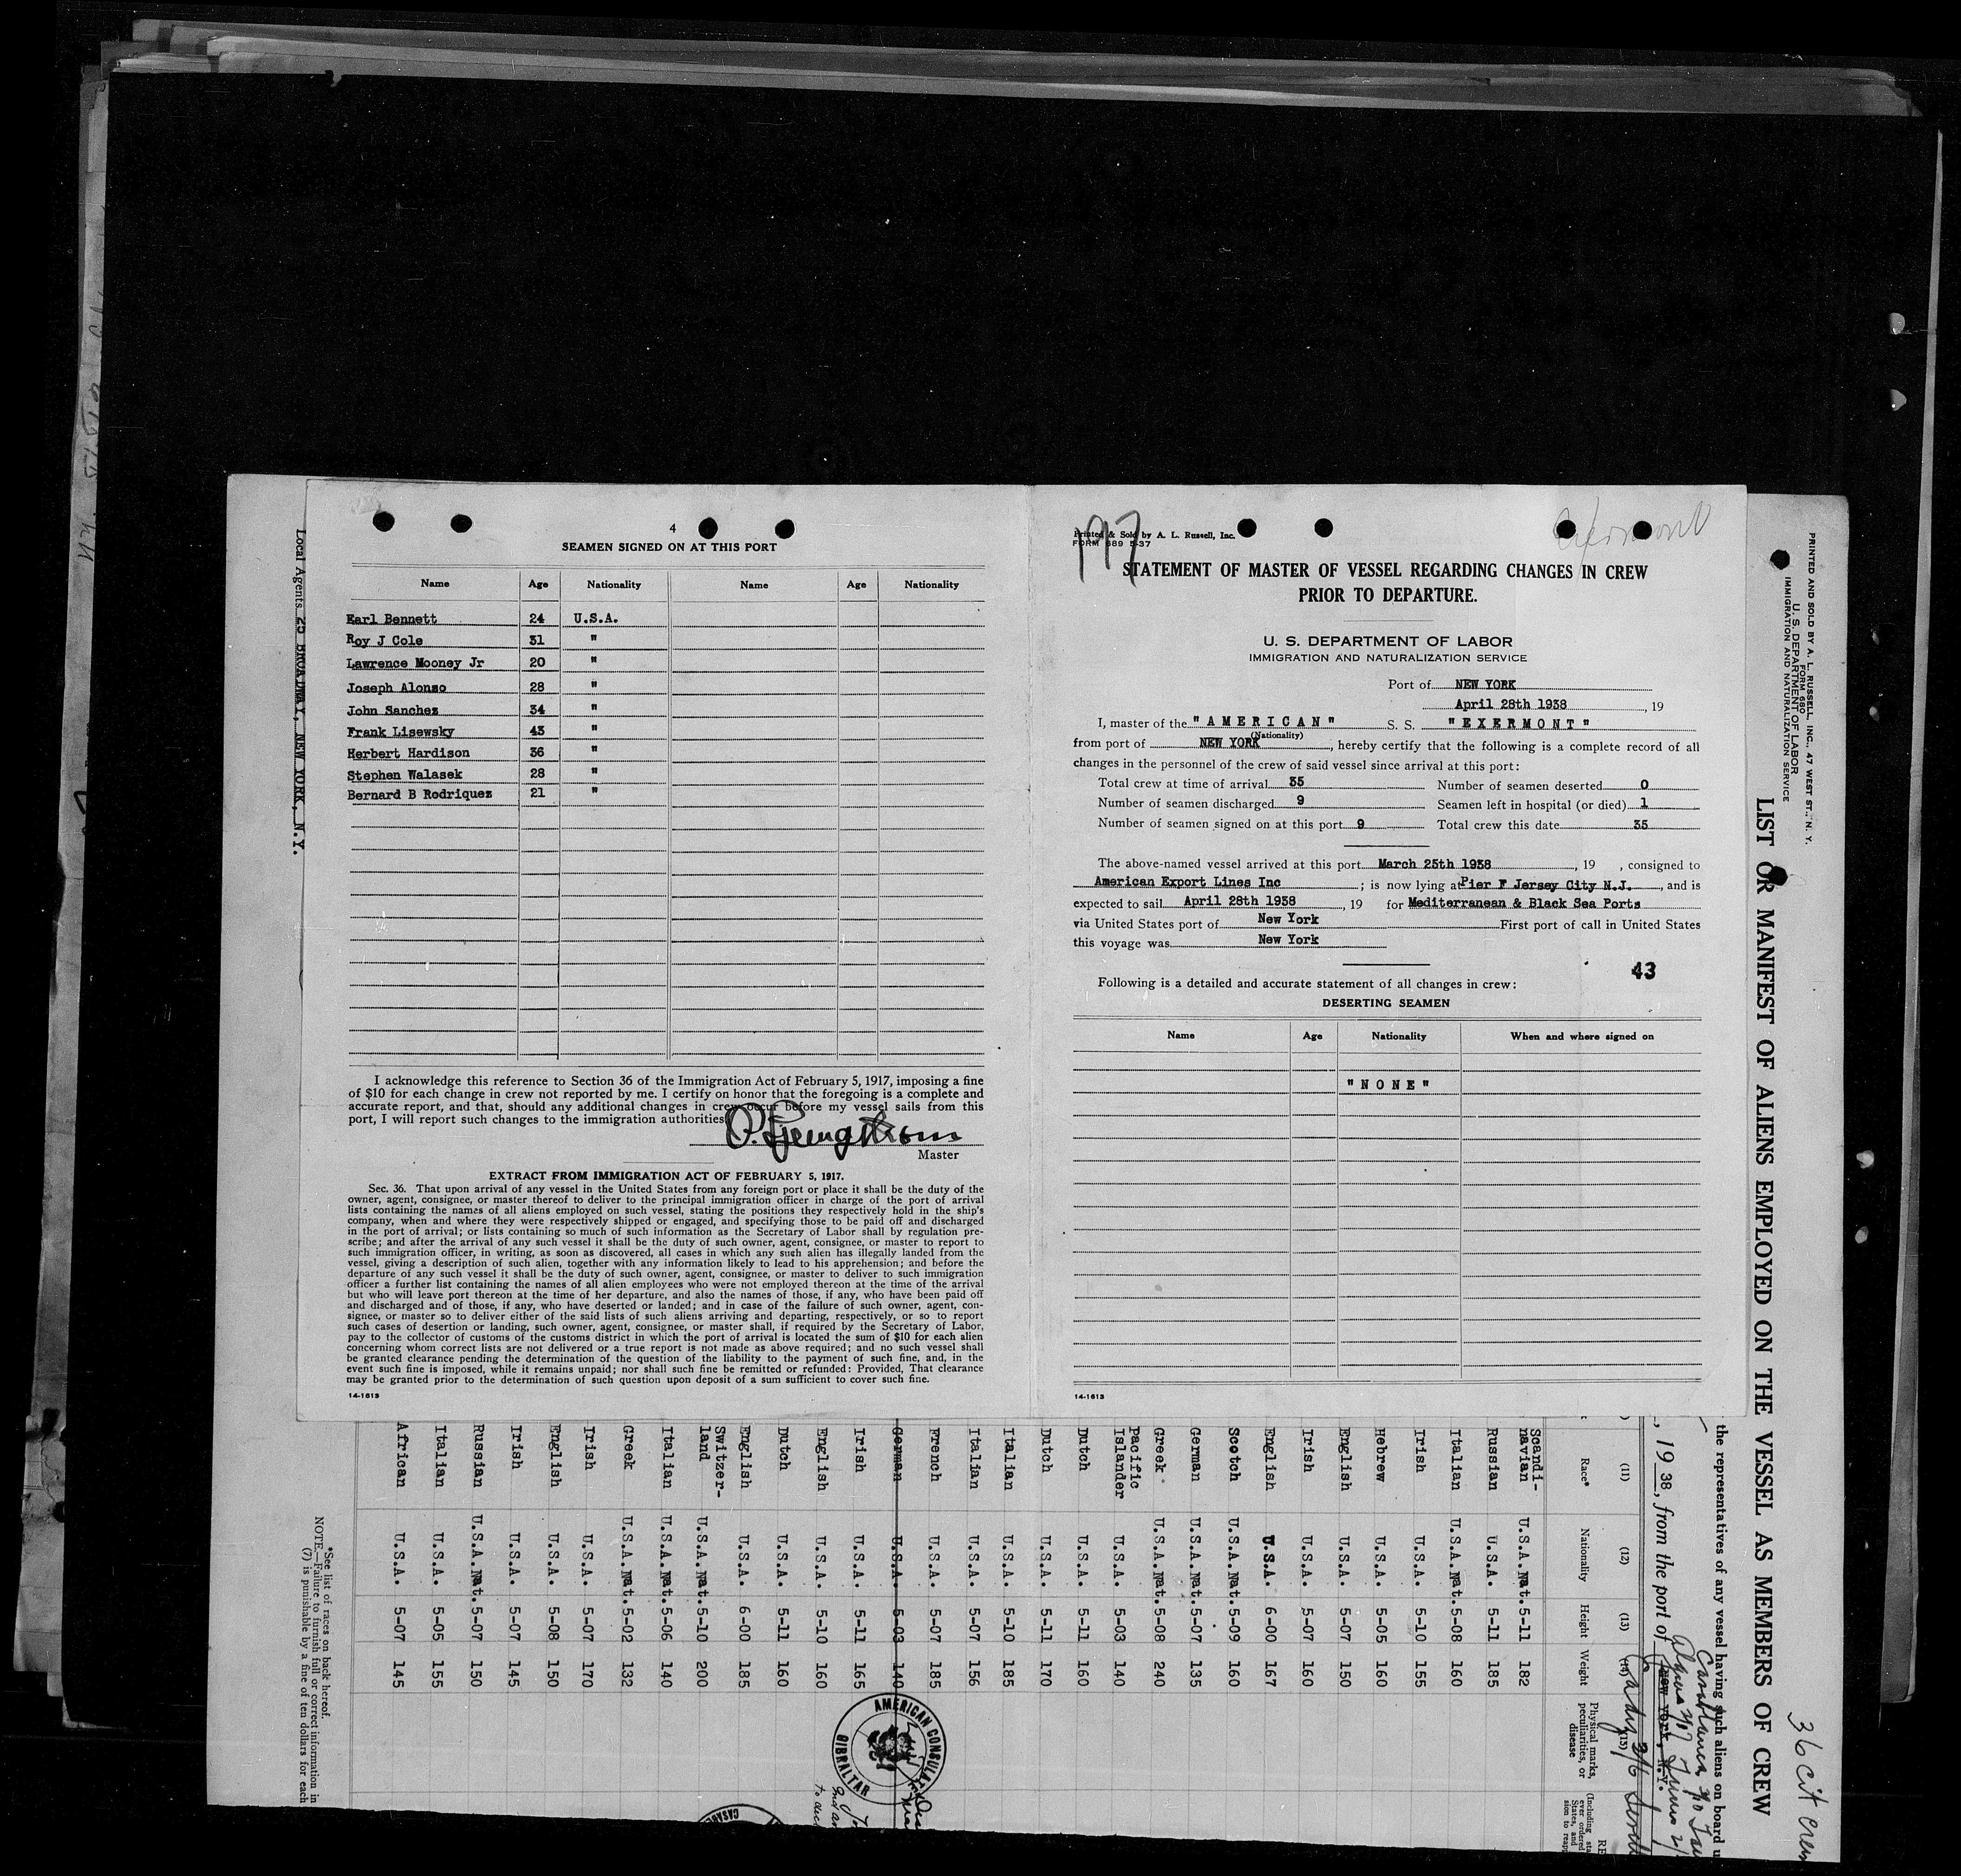 4
SEAMEN SIGNED ON AT THIS PORT
Name Age Nationality Name Age Nationality
Earl Bennett 24 U.S.A.
Roy J Cole 31 "
Lawrence Mooney Jr 20 "
Joseph Alonso 28 "
John Sanchez 34 "
Frank Lisewsky 43 "
Herbert Hardison 36 "
Stephen Walasek 28 "
Bernard B Rodriquez 21 "
I acknowledge this reference to Section 36 of the Immigration Act of February 5, 1917, imposing a fine
of $10 for each change in crew not reported by me. I certify on honor that the foregoing is a complete and
accurate report, and that, should any additional changes in crew occur before my vessel sails from this
port, I will report such changes to the immigration authorities
Master
EXTRACT FROM IMMIGRATION ACT OF FEBRUARY 5, 1917.
Sec. 36. That upon arrival of any vessel in the United States from any foreign port or place it shall be the duty of the
owner, agent, consignee, or master thereof to deliver to the principal immigration officer in charge of the port of arrival
lists containing the names of all aliens employed on such vessel, stating the positions they respectively hold in the ship's
company, when and where they were respectively shipped or engaged, and specifying those to be paid off and discharged
in the port of arrival; or lists containing so much of such information as the Secretary of Labor shall by regulation pre-
scribe; and after the arrival of any such vessel it shall be the duty of such owner, agent, consignee, or master to report to
such immigration officer, in writing, as soon as discovered, all cases in which any such alien has illegally landed from the
vessel, giving a description of such alien, together with any information likely to lead to his apprehension; and before the
departure of any such vessel it shall be the duty of such owner, agent, consignee, or master to deliver to such immigration
officer a further list containing the names of all alien employees who were not employed thereon at the time of the arrival
but who will leave port thereon at the time of her departure, and also the names of those, if any, who have been paid off
and discharged and of those, if any, who have deserted or landed; and in case of the failure of such owner, agent, con-
signee, or master so to deliver either of the said lists of such aliens arriving and departing, respectively, or so to report
such cases of desertion or landing, such owner, agent, consignee, or master shall, if required by the Secretary of Labor,
pay to the collector of customs of the customs district in which the port of arrival is located the sum of $10 for each alien
concerning whom correct lists are not delivered or a true report is not made as above required; and no such vessel shall
be granted clearance pending the determination of the question of the liability to the payment of such fine, and, in the
event such fine is imposed, while it remains unpaid; nor shall such fine be remitted or refunded: Provided, That clearance
may be granted prior to the determination of such question upon deposit of a sum sufficient to cover such fine.
14-1613
197
Exermont
Printed & Sold by A. L. Russell, Inc.
FORM 689 5-37
STATEMENT OF MASTER OF VESSEL REGARDING CHANGES IN CREW
PRIOR TO DEPARTURE.
U. S. DEPARTMENT OF LABOR
IMMIGRATION AND NATURALIZATION SERVICE
Port of NEW YORK
April 28th 1938, 19
I, master of the "AMERICAN" S. S. "EXERMONT"
(Nationality)
from port of NEW YORK, hereby certify that the following is a complete record of all
changes in the personnel of the crew of said vessel since arrival at this port:
Total crew at time of arrival 35 Number of seamen deserted 0
Number of seamen discharged 9 Seamen left in hospital (or died) 1
Number of seamen signed on at this port 9 Total crew this date 35
The above-named vessel arrived at this port March 25th 1938, 19 , consigned to
American Export Lines Inc ; is now lying at Pier F Jersey City N.J., and is
expected to sail April 28th 1938, 19 for Mediterranean & Black Sea Ports
via United States port of New York First port of call in United States
this voyage was New York
43
Following is a detailed and accurate statement of all changes in crew:
DESERTING SEAMEN
Name Age Nationality When and where signed on
"NONE"
14-1613
Local Agents 25 BROADWAY, NEW YORK, N.Y.
PRINTED AND SOLD BY A. L. RUSSELL, INC., 47 WEST ST., N. Y.
FORM 680
U. S. DEPARTMENT OF LABOR
IMMIGRATION AND NATURALIZATION SERVICE
LIST OR MANIFEST OF ALIENS EMPLOYED ON THE VESSEL AS MEMBERS OF CREW
36 cit crew
the representatives of any vessel having such aliens on board u
, 1938, from the port of New York, N.Y.
Cadiz 3/6
(11) (12) (13) (14) (15)
Race* Nationality Height Weight Physical marks, peculiarities, or disease
Scandi-navian U.S.A.Nat. 5-11 182
Russian U.S.A. 5-11 185
Italian U.S.A.Nat. 5-08 160
Irish U.S.A. 5-10 155
Hebrew U.S.A. 5-05 160
English U.S.A. 5-07 150
Irish U.S.A. 5-07 160
English U.S.A. 6-00 167
Scotch U.S.A.Nat. 5-09 160
German U.S.A.Nat. 5-07 135
Greek U.S.A.Nat. 5-08 240
Pacific Islander U.S.A. 5-03 140
Dutch U.S.A. 5-11 160
Dutch U.S.A. 5-11 170
Italian U.S.A. 5-10 185
Italian U.S.A. 5-07 156
French U.S.A. 5-07 185
German U.S.A. 5-03 140
Irish U.S.A. 5-11 165
English U.S.A. 5-10 160
Dutch U.S.A. 5-11 160
English U.S.A. 6-00 185
Switzer-land U.S.A.Nat. 5-10 200
Italian U.S.A.Nat. 5-06 140
Greek U.S.A.Nat. 5-02 132
Irish U.S.A. 5-07 170
English U.S.A. 5-08 150
Irish U.S.A. 5-07 145
Russian U.S.A.Nat. 5-07 150
Italian U.S.A. 5-05 155
African U.S.A. 5-07 145
AMERICAN CONSULATE
GIBRALTAR
*See list of races on back hereof.
NOTE.—Failure to furnish full or correct information in
(7) is punishable by a fine of ten dollars for each